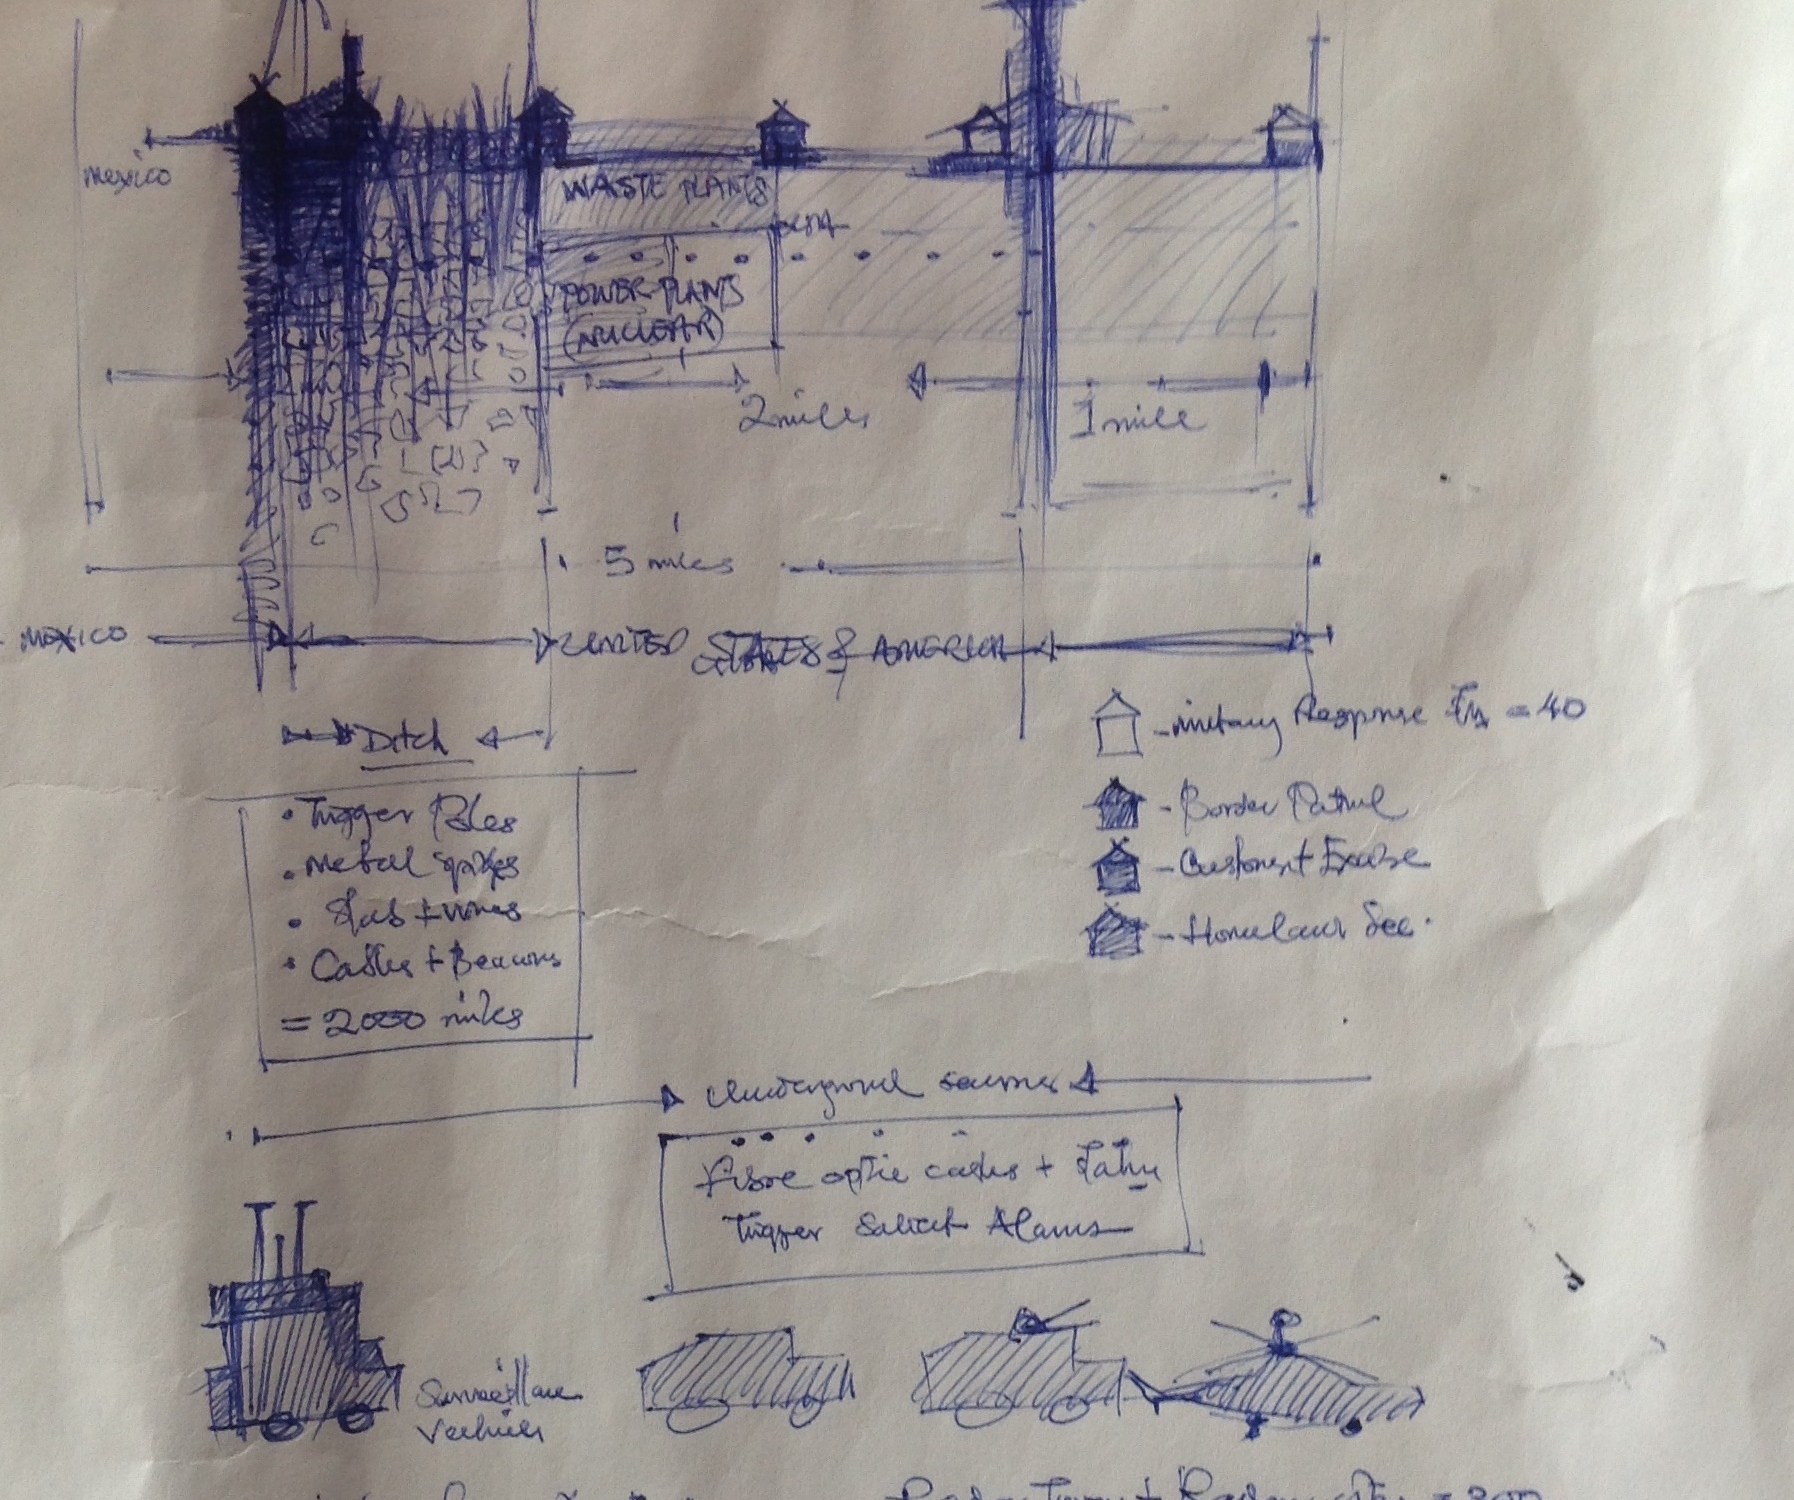 mexico
WASTE PLANTS
POWER PLANTS
(NUCLEAR)
2 miles
1 mile
5 miles
MEXICO
UNITED STATES OF AMERICA
Ditch
• Trigger Poles
• Metal spikes
• Slab + wires
• Cables + Beacons
= 2000 miles
- Military Response = 40
- Border Patrol
- Customs + Excise
- Homeland Sec.
Underground sensors
Fibre optic cables +
Trigger Silent Alarms
Surveillance
Vehicles